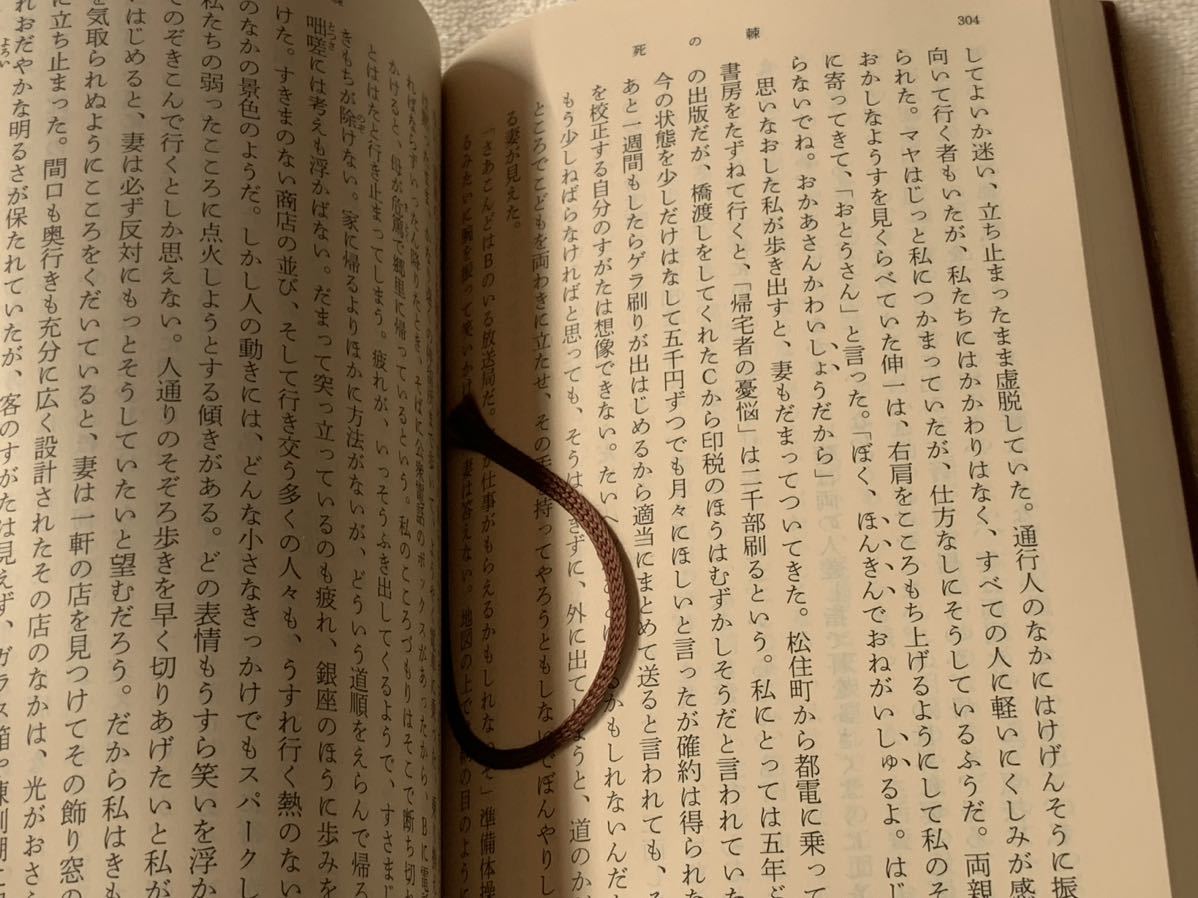 304
死の棘
してよいか迷い、立ち止まったまま虚脱していた。通行人のなかにはけげんそうに振
向いて行く者もいたが、私たちにはかかわりはなく、すべての人に軽いにくしみが感
られた。マヤはじっと私につかまっていたが、仕方なしにそうしているふうだ。両親
おかしなようすを見くらべていた伸一は、右肩をこころもち上げるようにして私のそ
に寄ってきて、「おとうさん」と言った。「ぼく、ほんきんでおねがいしゅるよ。はじ
らないでね。おかあさんかわいしょうだから」
思いなおした私が歩き出すと、妻もだまってついてきた。松住町から都電に乗って
書房をたずねて行くと、「帰宅者の憂悩」は二千部刷るという。私にとっては五年ど
の出版だが、橋渡しをしてくれたCから印税のほうはむずかしそうだと言われていた
今の状態を少しだけはなして五千円ずつでも月々にほしいと言ったが確約は得られた
あと一週間もしたらゲラ刷りが出はじめるから適当にまとめて送ると言われても、
を校正する自分のすがたは想像できない。たいへ かもしれないんだ
もう少しねばらなければと思っても、そうは きずに、外に出て ようと、道のか
ところでこどもを両わきに立たせ、その 持ってやろうともしない でぼんやりし
る妻が見えた。
「さあこんどはBのいる放送局だ。 仕事がもらえるかもしれな ぞ」準備体操
るみたいに腕を振って笑いかけ 妻は答えない。地図の上で の目のように
ればならず いったん降りたとき、そばに公衆電話のボックスがあったから、Bに電
かけると、母が危篤で郷里に帰っているという。私のこころづもりはそこで断ち切れ
とははたと行き止まってしまう。疲れが、いっそうふき出してくるようで、すさまじ
きもちが除けない。家に帰るよりほかに方法がないが、どういう道順をえらんで帰る
咄嗟には考えも浮かばない。だまって突っ立っているのも疲れ、銀座のほうに歩みを
けた。すきまのない商店の並び、そして行き交う多くの人々も、うすれ行く熱のない
のなかの景色のようだ。しかし人の動きには、どんな小さなきっかけでもスパークし
私たちの弱ったこころに点火しようとする傾きがある。どの表情もうすら笑いを浮か
てのぞきこんで行くとしか思えない。人通りのぞろぞろ歩きを早く切りあげたいと私が
はじめると、妻は必ず反対にもっとそうしていたいと望むだろう。だから私はきも
を気取られぬようにこころをくだいていると、妻は一軒の店を見つけてその飾り窓の
に立ち止まった。間口も奥行きも充分に広く設計されたその店のなかは、光がおさ
れおだやかな明るさが保たれていたが、客のすがたは見えず、ガラス箱